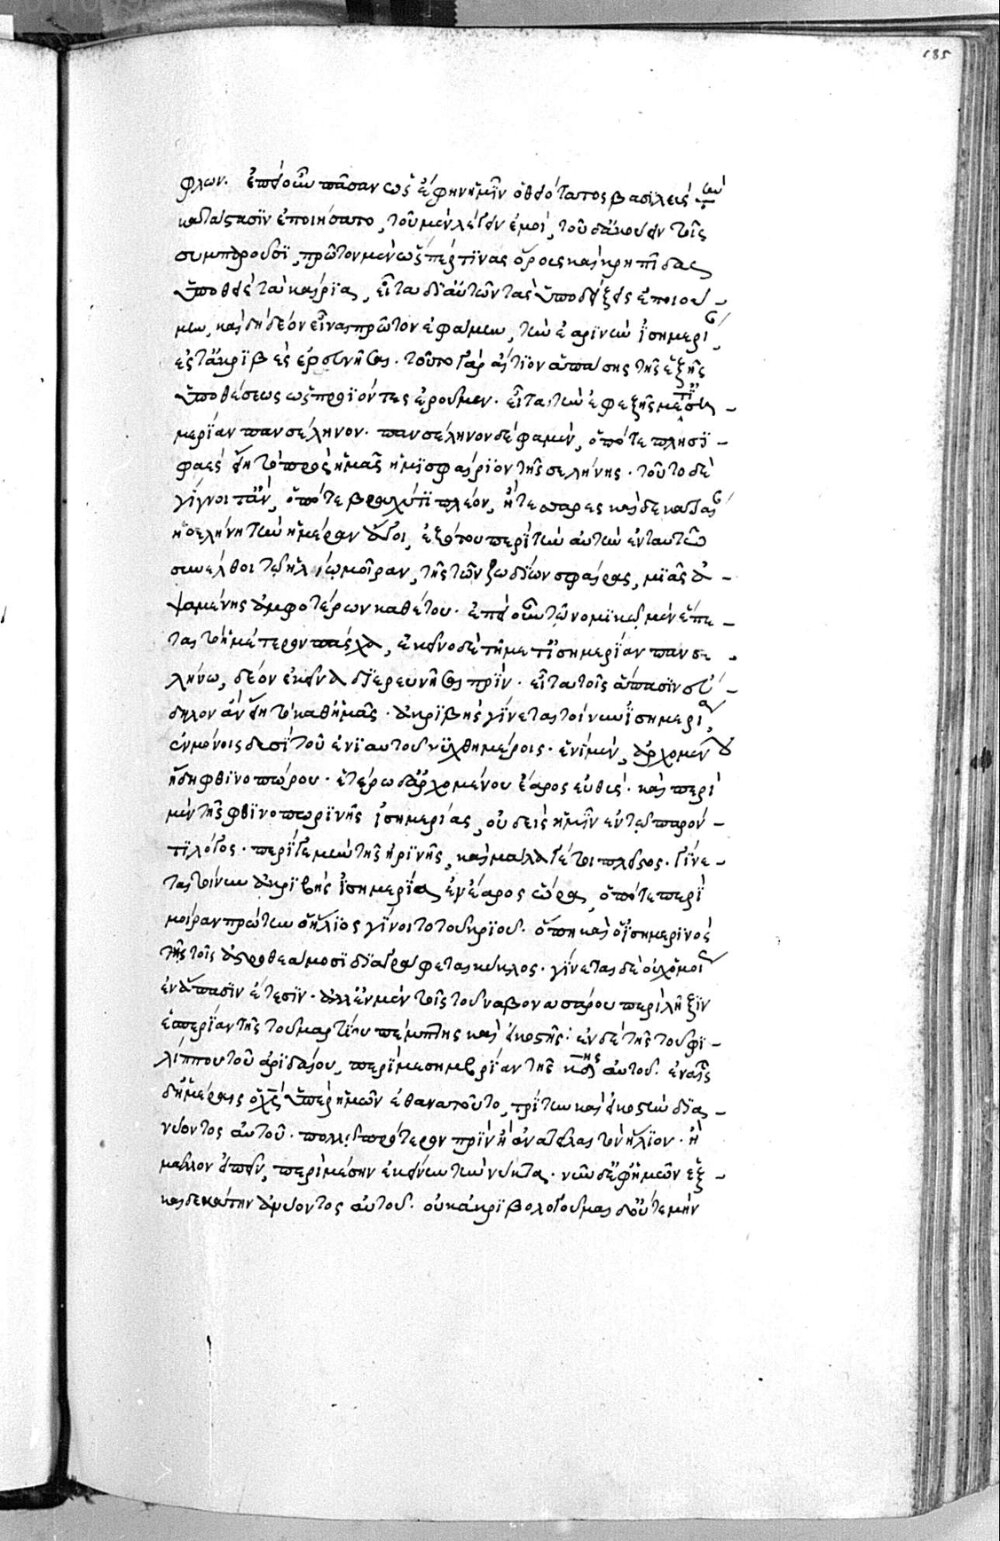 185
φλων. ἐπεὶ οὖν πᾶσαν ὡς ἔφην ἡμῖν ὁ θειότατος βασιλεὺς τὴν
κατάστασιν ἐποιήσατο, τοῦ μὲν λέγειν ἐμοί, τοῦ δ' ἀκούειν τοῖς
συμπαροῦσι, πρῶτον μὲν ὥσπερ τινὰς ὅρους καὶ κρηπῖδας
ὑποθεὶς τὰ καίρια, εἶτα δι' αὐτῶν τὰς ὑποδείξεις ἐποιού-
μην, καὶ δὴ δέον εἶναι πρῶτον ἔφαμεν, τὴν ἐαρινὴν ἰσημερί
ἐς τἀκριβὲς ἐρευνῆσαι. τοῦτο γὰρ αἴτιον ἁπάσης τῆς ἑξῆς
ὑποθέσεως ὡς προϊόντες ἐροῦμεν. εἶτα τὴν ἐφεξῆς μετ' ἰση-
μερίαν πανσέληνον. πανσέληνον δέ φαμεν, ὁπότε πλησι-
φαὲς εἴη τὸ πρὸς ἡμᾶς ἡμισφαίριον τῆς σελήνης. τοῦτο δὲ
γίγνοιτ' ἄν, ὁπότε βραχύ τι πλέον, ἢ τεσσαρεσκαίδεκα τὰς
ἡ σελήνη τὴν ἡμέραν ἄγοι, ἐξ ὅτου περὶ τὴν αὐτὴν ἐν ταυτῷ
συνέλθοι τῷ ἡλίῳ μοῖραν, τῆς τῶν ζωδίων σφαίρας, μιᾶς ἁ-
ψαμένης ἀμφοτέρων καθέτου. ἐπεὶ οὖν τῷ νομικῷ μὲν ἕπε-
ται τὸ ἡμέτερον πάσχα, ἐκεῖνο δὲ τῇ μετ' ἰσημερίαν πανσε-
λήνῳ, δέον ἐκεῖνα διερευνῆσαι πρίν. εἶτα τοῖς ἅπασιν εὔ-
δηλον ἂν εἴη τὸ καθ' ἡμᾶς. ἀκριβὴς γίνεται τοίνυν ἰσημερία,
ἐν μόνοις δυσὶ τοῦ ἐνιαυτοῦ νυχθημέροις. ἑνὶ μέν, ἀρχομένου
ἤδη φθινοπώρου. ἑτέρῳ δ' ἀρχομένου ἔαρος εὐθύς. καὶ περὶ
μὲν τῆς φθινοπωρινῆς ἰσημερίας, οὐδεὶς ἡμῖν ἐν τῷ παρόν-
τι λόγος. περί γε μὴν τῆς ἠρινῆς, καὶ μάλα γέ τοι πλεῖος. γίνε-
ται τοίνυν ἀκριβὴς ἰσημερία ἐν ἔαρος ὥρᾳ, ὁπότε περὶ
μοῖραν πρώτην ὁ ἥλιος γίνοιτο τοῦ κριοῦ. ὅπη καὶ ὁ ἰσημερινὸς
τῆς τοῖς ἀστροθεάμοσι διαγράφεται κύκλος. γίνεται δὲ οὐχ ὁμοί
ἐν ἅπασιν ἔτεσιν. ἀλλ' ἐν μὲν τοῖς τοῦ ναβονασάρου περὶ λῆξιν
ἑσπερίαν τῆς τοῦ μαρτίου πέμπτης καὶ εἰκοστῆς. ἐν δὲ τῆς τοῦ φι-
λίππου τοῦ ἀριδαίου, περὶ μεσημβρίαν τῆς κδης αὐτοῦ. ἐν αἷς
δ' ἡμέραις ὁ χς ὑπὲρ ἡμῶν ἐθανατοῦτο, τρίτην καὶ εἰκοστὴν δια-
νύοντος αὐτοῦ. πολλῷ πρότερον πρὶν ἢ ἀνατεῖλαι τὸν ἥλιον. ἢ
μᾶλλον εἰπεῖν, περὶ μέσην ἐκείνην τὴν νύκτα. νῦν δ' ἐφ' ἡμῶν ἑξ-
καιδεκάτην ἀνύοντος αὐτοῦ. οὐκ ἀκριβολογοῦμαι δ' οὔτε μὴν